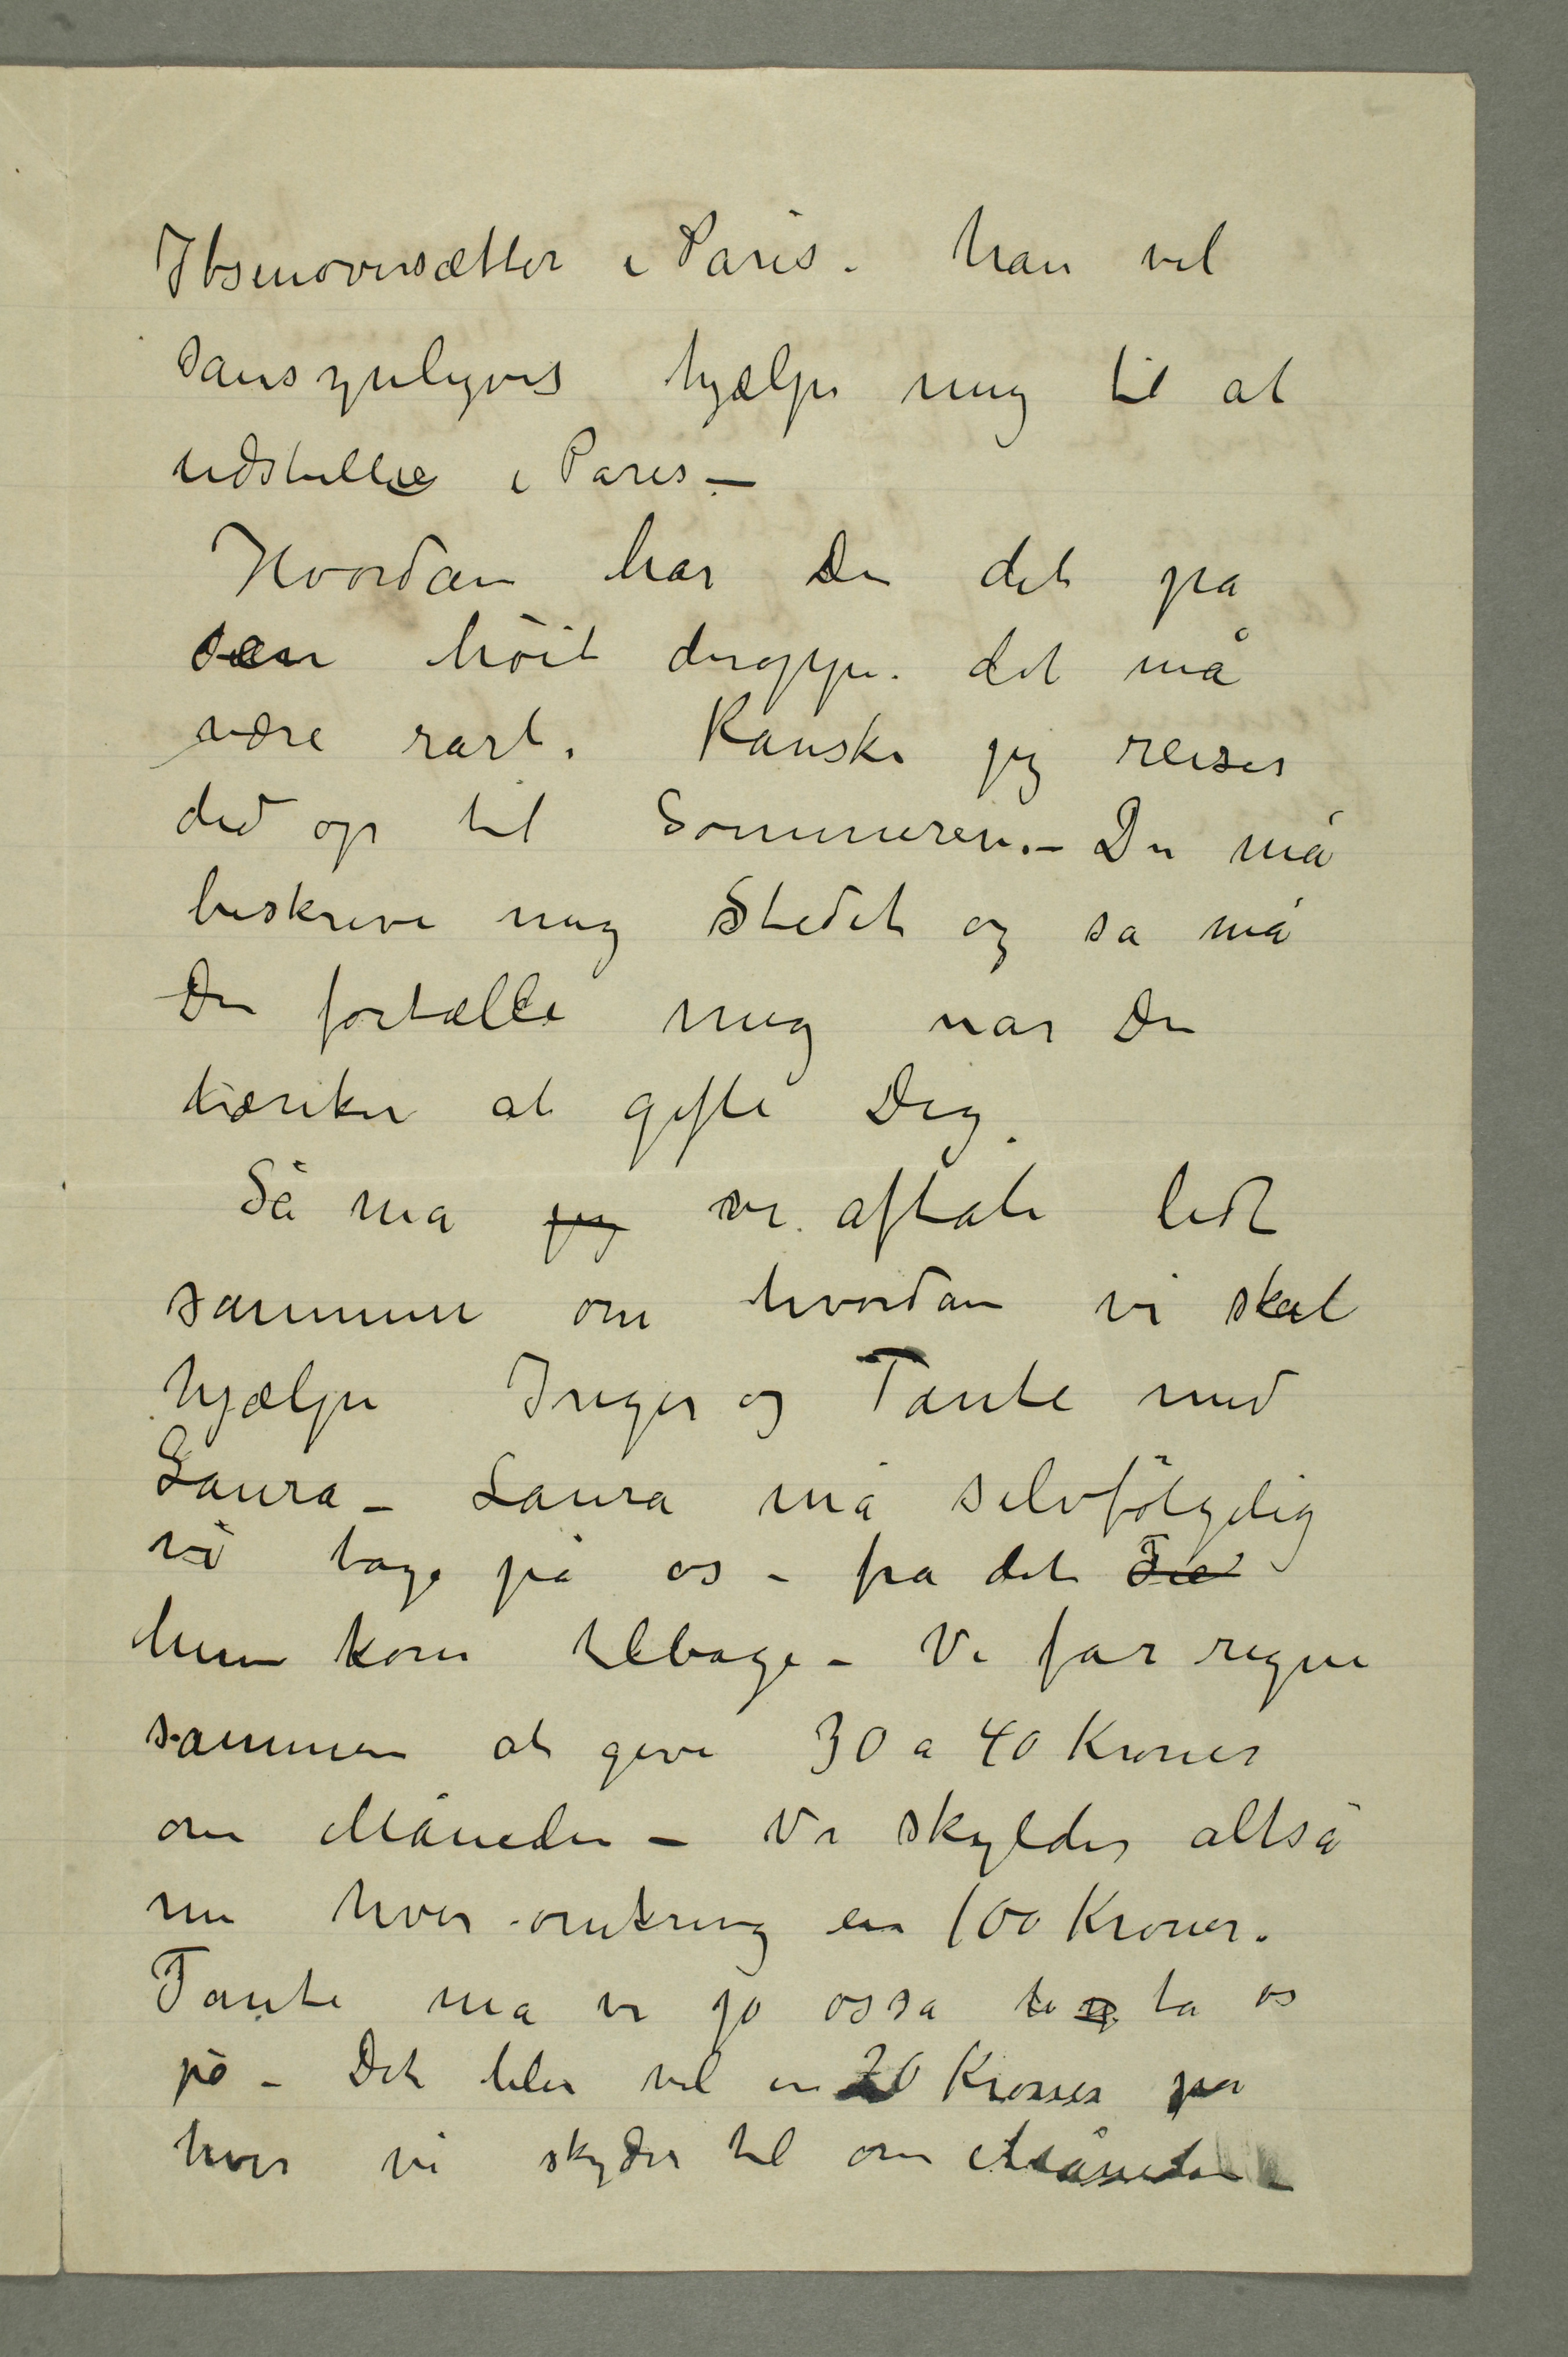 Ibsenoversætter i Paris. han vil
sansynligvis hjælpe mig til at
udstille i Paris –
Hvordan har Du det på
den höit deroppe. det må
være rart. Kanske jeg reiser
did op til Sommeren. – Du må
beskrive mig Stedet og sa må
Du fortælle mig nar Du
tænker at gifte Dig.
Så ma jeg vi aftale lidt
sammen om hvordan vi skal
hjælpe Inger og Tante med
Laura – Laura må selvfölgelig
vi tage på os – fra det
hun kom tilbage – Vi far regne
sammen at give 30 a 40 Kroner
om Måneden – Vi skylder altså
nu hver omkring en 100 Kroner.
Tante ma vi jo ossa ta os
på – Det blir vel en 20 Kroner pa
hver vi skyder til om Måneden